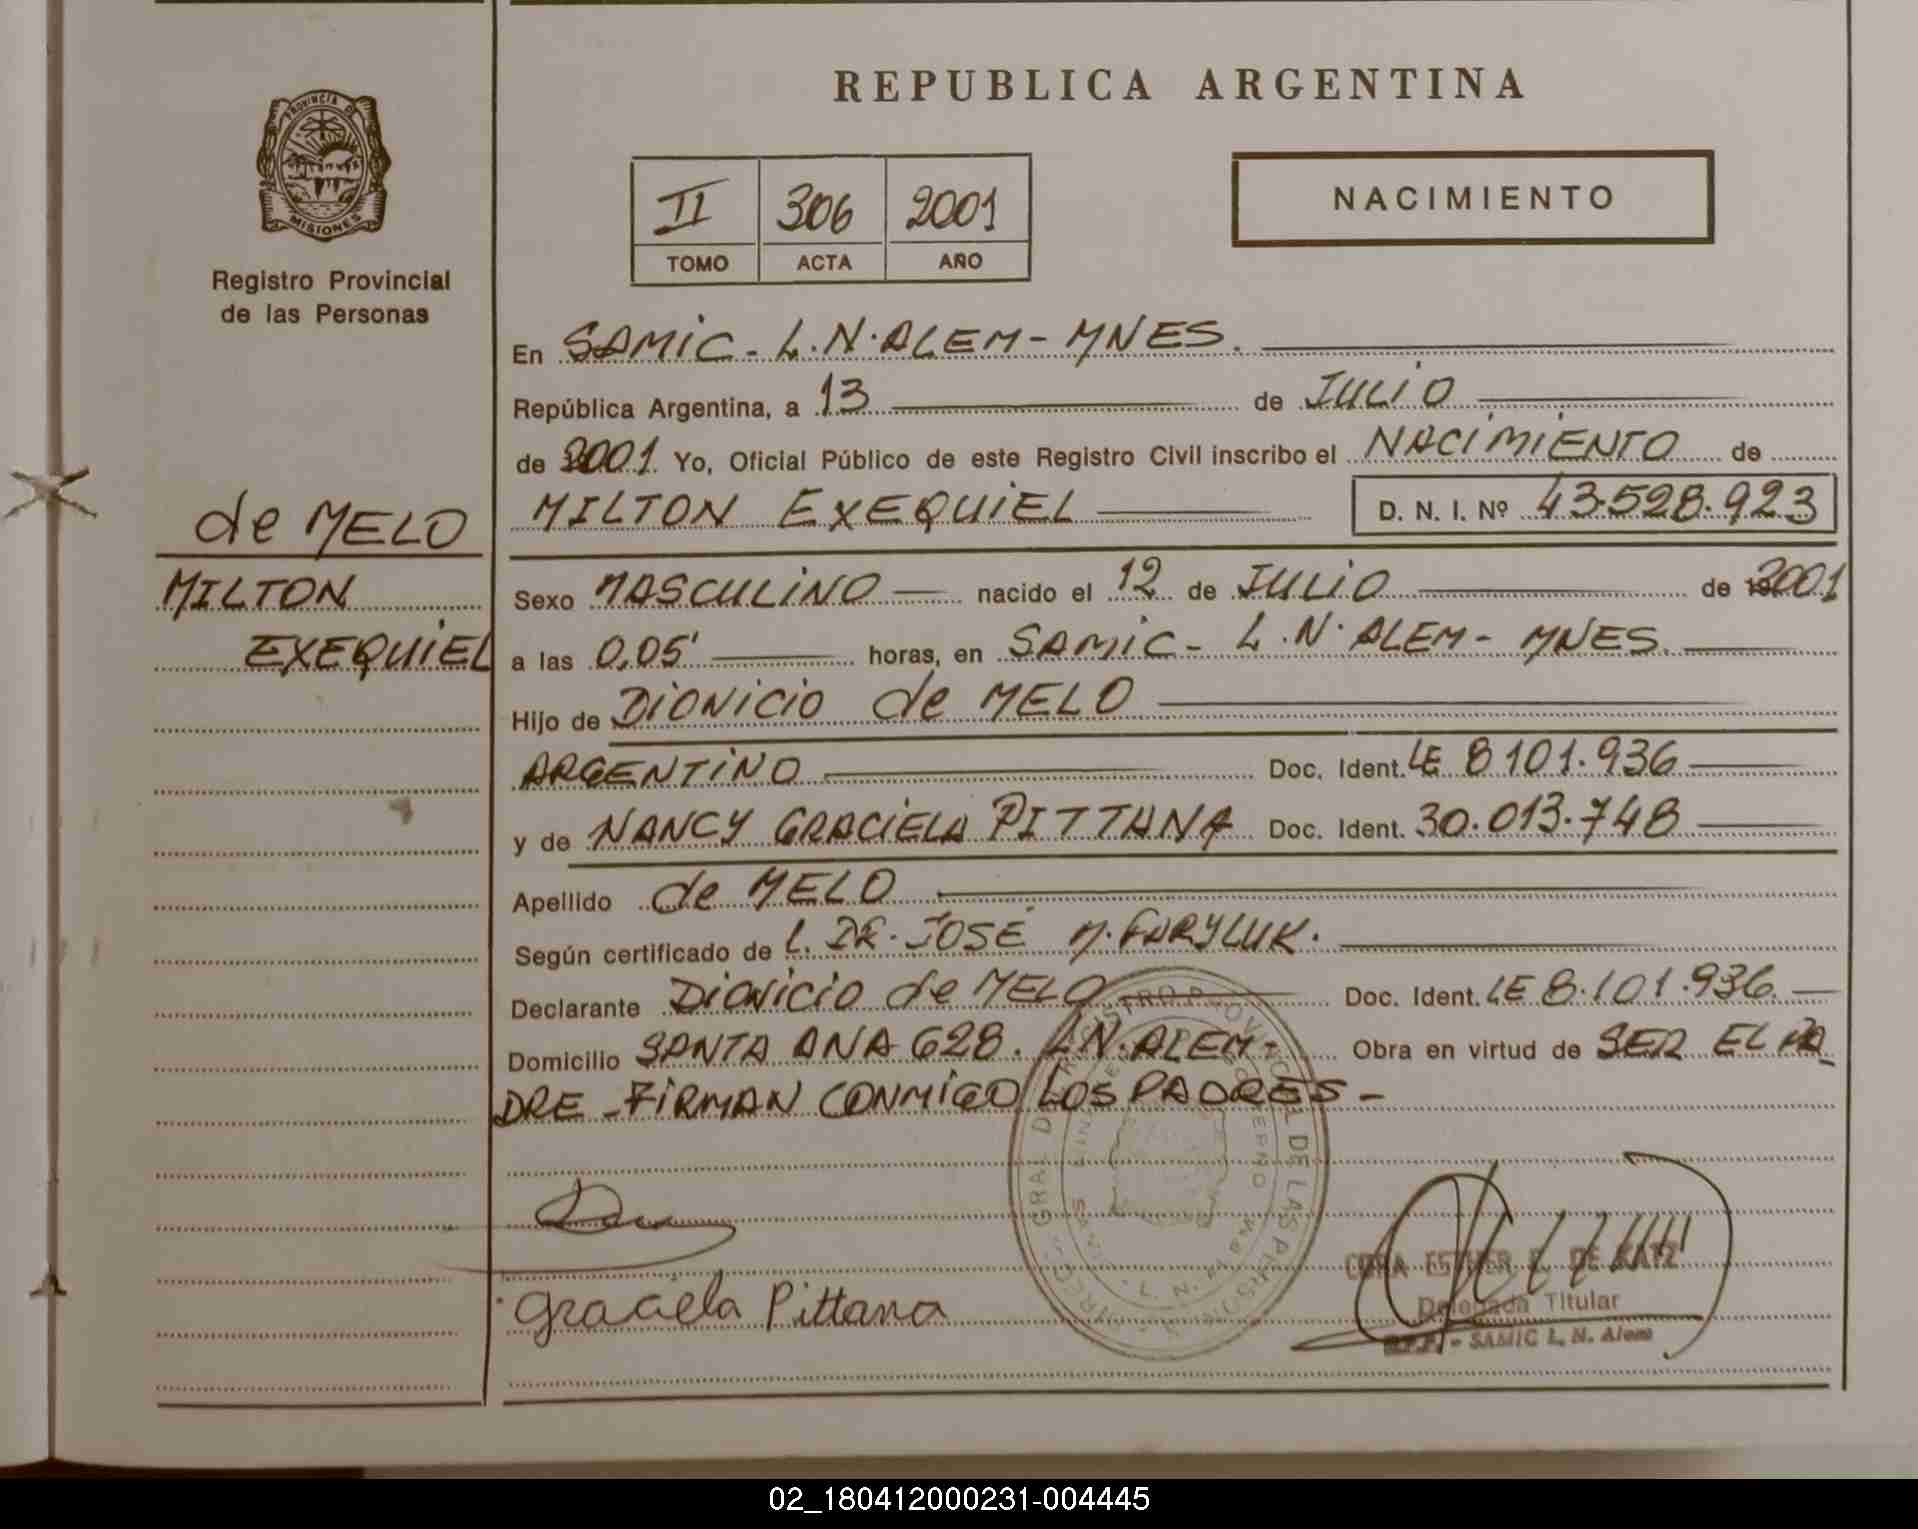 REPUBLICA ARGENTINA
PROVINCIA DE
MISIONES
Registro Provincial
de las Personas
II 306 2001
TOMO ACTA AÑO
NACIMIENTO
En SAMIC - L.N. ALEM - MNES.
República Argentina, a 13 de JULIO
de 2001 Yo, Oficial Público de este Registro Civil inscribo el NACIMIENTO de
MILTON EXEQUIEL D. N. I. Nº 43.528.923
de MELO
MILTON
EXEQUIEL
Sexo MASCULINO nacido el 12 de JULIO de 2001
a las 0,05' horas, en SAMIC - L.N. ALEM - MNES.
Hijo de DIONICIO de MELO
ARGENTINO Doc. Ident. LE 8 101.936
y de NANCY GRACIELA PITTANA Doc. Ident. 30.013.748
Apellido de MELO
Según certificado de L. DR. JOSÉ M.
Declarante DIONICIO de MELO Doc. Ident. LE 8.101.936
Domicilio SANTA ANA 628. L.N. ALEM - Obra en virtud de SER EL PA
DRE - FIRMAN CONMIGO LOS PADRES -
Graciela Pittana
ESTHER DE KATZ
Delegada Titular
R.P.P. - SAMIC L. N. Alem
02_180412000231-004445